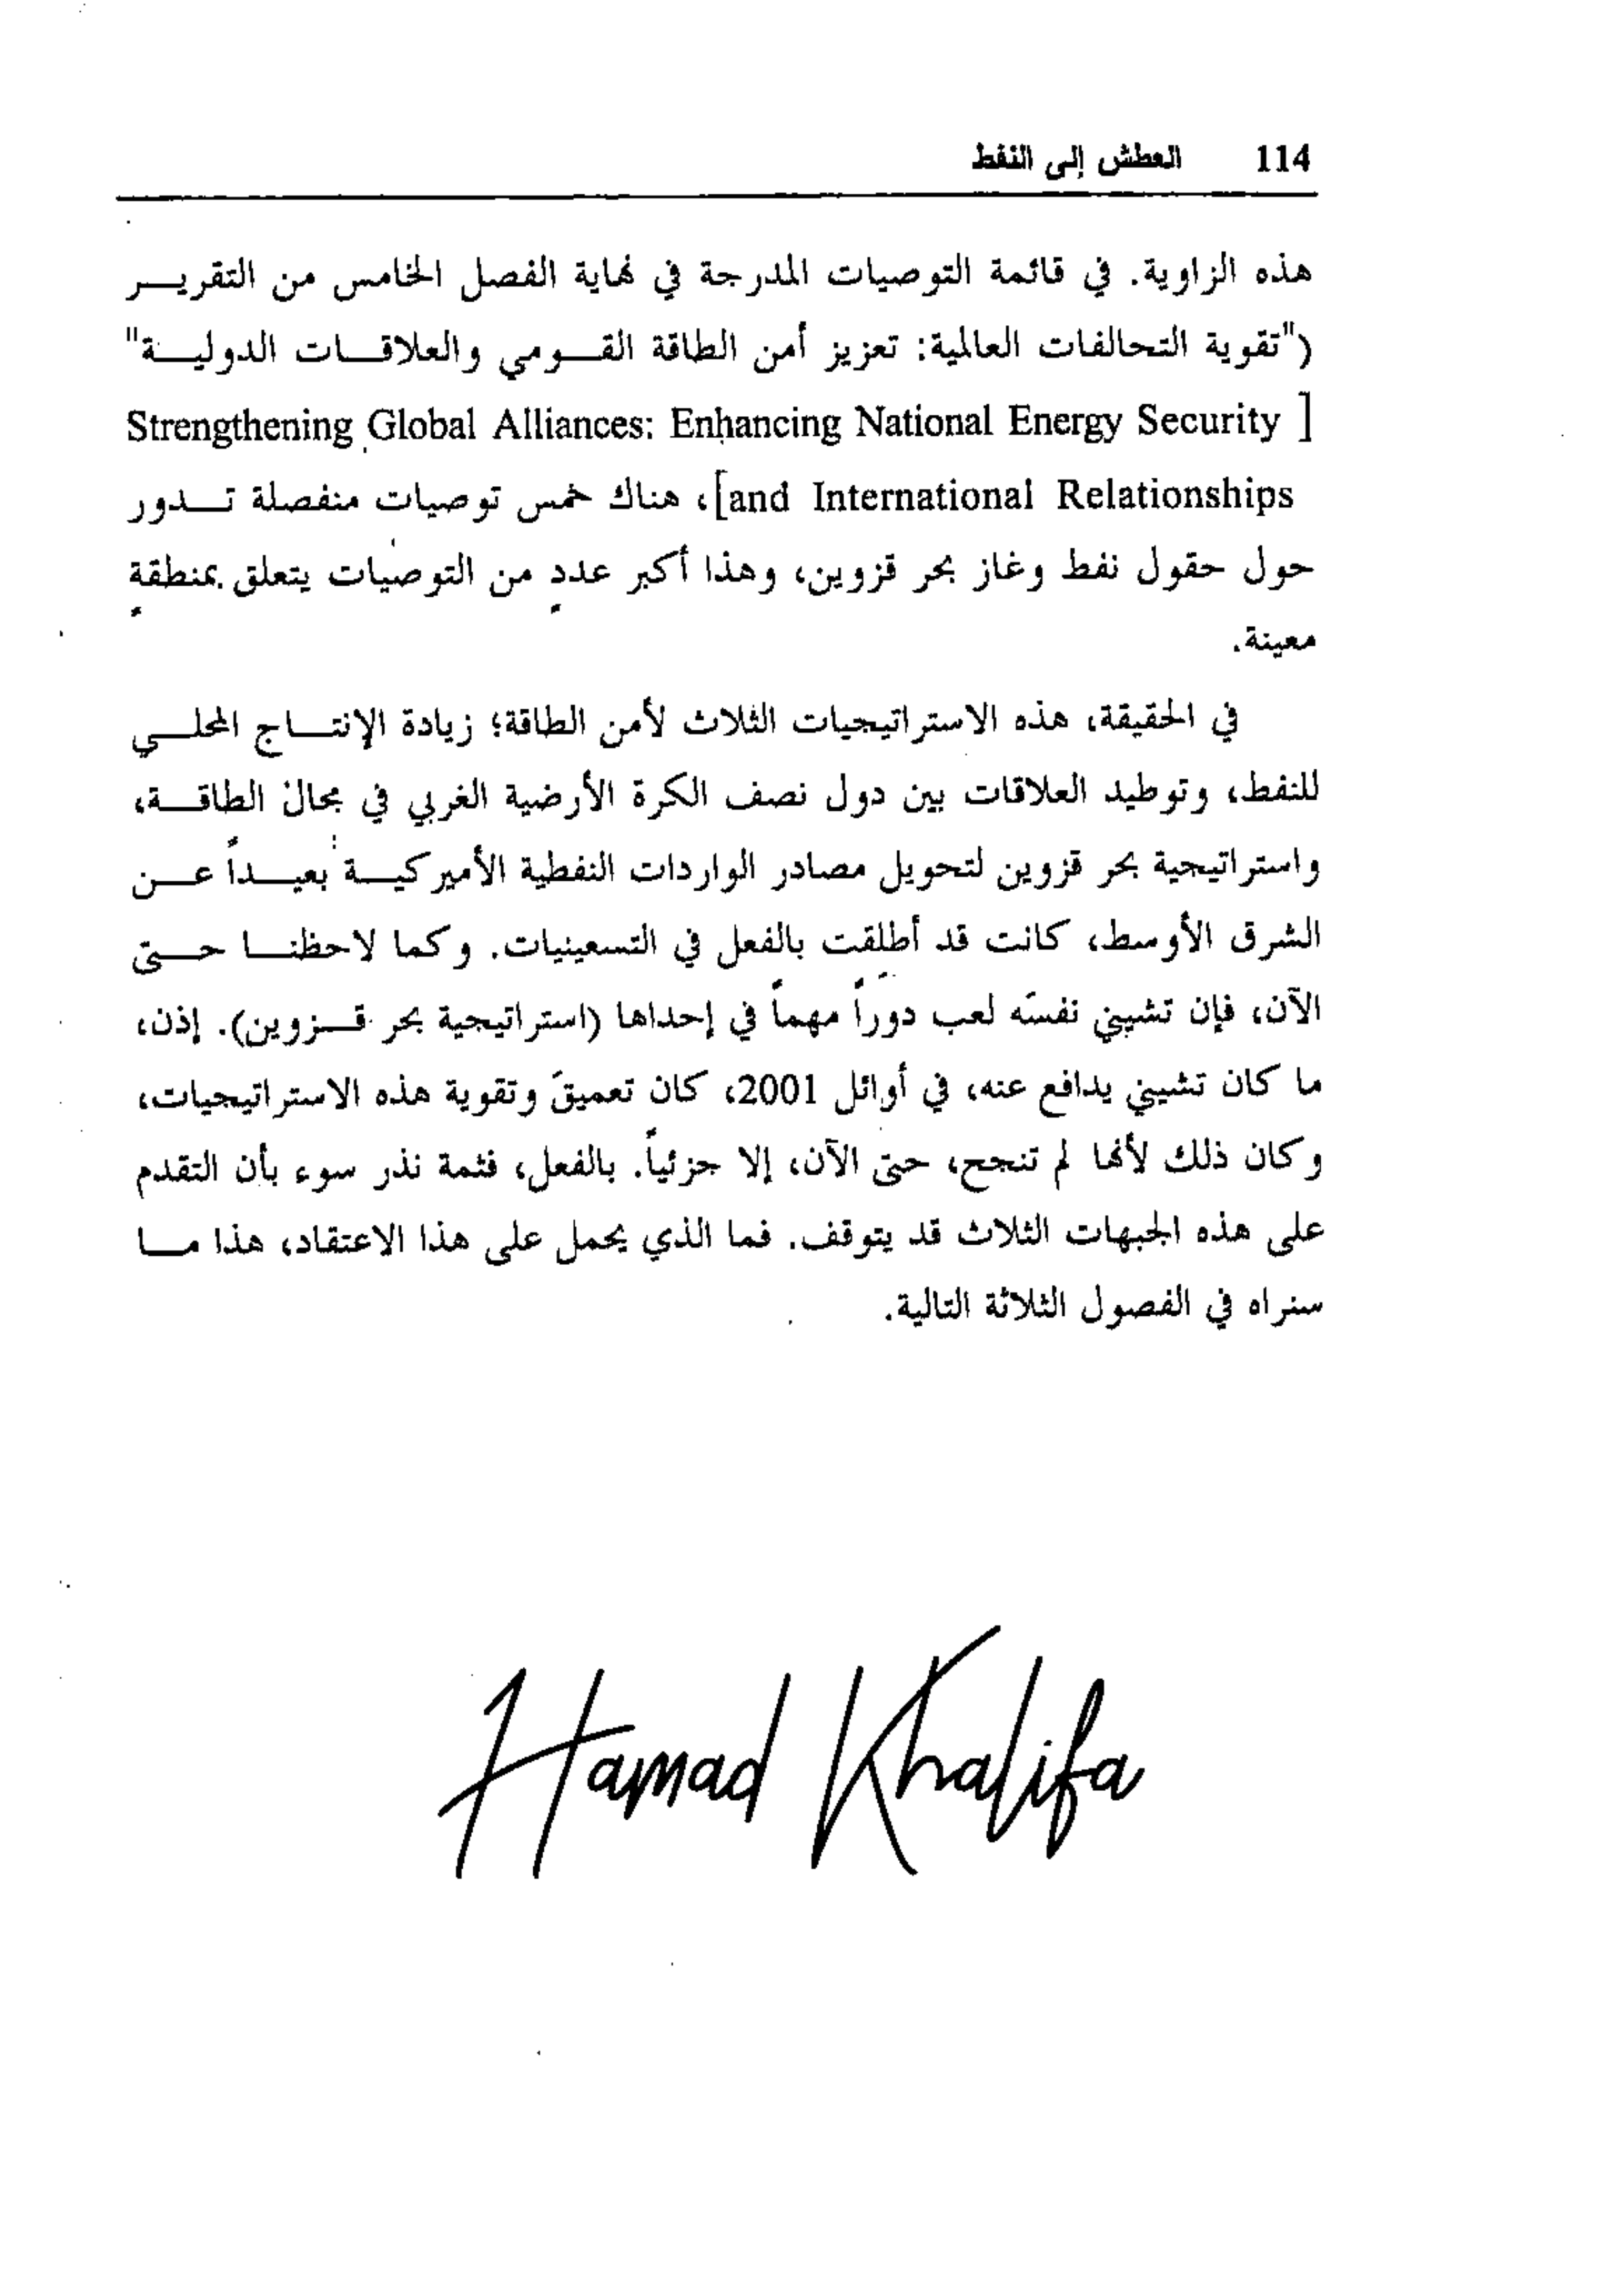 114 العطش إلى النفط
هذه الزاوية. في قائمة التوصيات المدرجة في نهاية الفصل الخامس من التقريـــر
("تقوية التحالفات العالمية: تعزيز أمن الطاقة القـــومي والعلاقـــات الدوليـــة"
[ Strengthening Global Alliances: Enhancing National Energy Security
and International Relationships]، هناك خمس توصيات منفصلة تـــدور
حول حقول نفط وغاز بحر قزوين، وهذا أكبر عددٍ من التوصيات يتعلق بمنطقةٍ
معينة.
في الحقيقة، هذه الاستراتيجيات الثلاث لأمن الطاقة؛ زيادة الإنتـــاج المحلـــي
للنفط، وتوطيد العلاقات بين دول نصف الكرة الأرضية الغربي في مجال الطاقـــة،
واستراتيجية بحر قزوين لتحويل مصادر الواردات النفطية الأميركيـــة بعيـــداً عـــن
الشرق الأوسط، كانت قد أطلقت بالفعل في التسعينيات. وكما لاحظنـــا حـــتى
الآن، فإن تشيني نفسَه لعب دوراً مهماً في إحداها (استراتيجية بحر قـــزوين). إذن،
ما كان تشيني يدافع عنه، في أوائل 2001، كان تعميقَ وتقوية هذه الاستراتيجيات،
وكان ذلك لأنها لم تنجح، حتى الآن، إلا جزئياً. بالفعل، فثمة نذر سوء بأن التقدم
على هذه الجبهات الثلاث قد يتوقف. فما الذي يحمل على هذا الاعتقاد، هذا مـــا
سنراه في الفصول الثلاثة التالية.
Hamad Khalifa